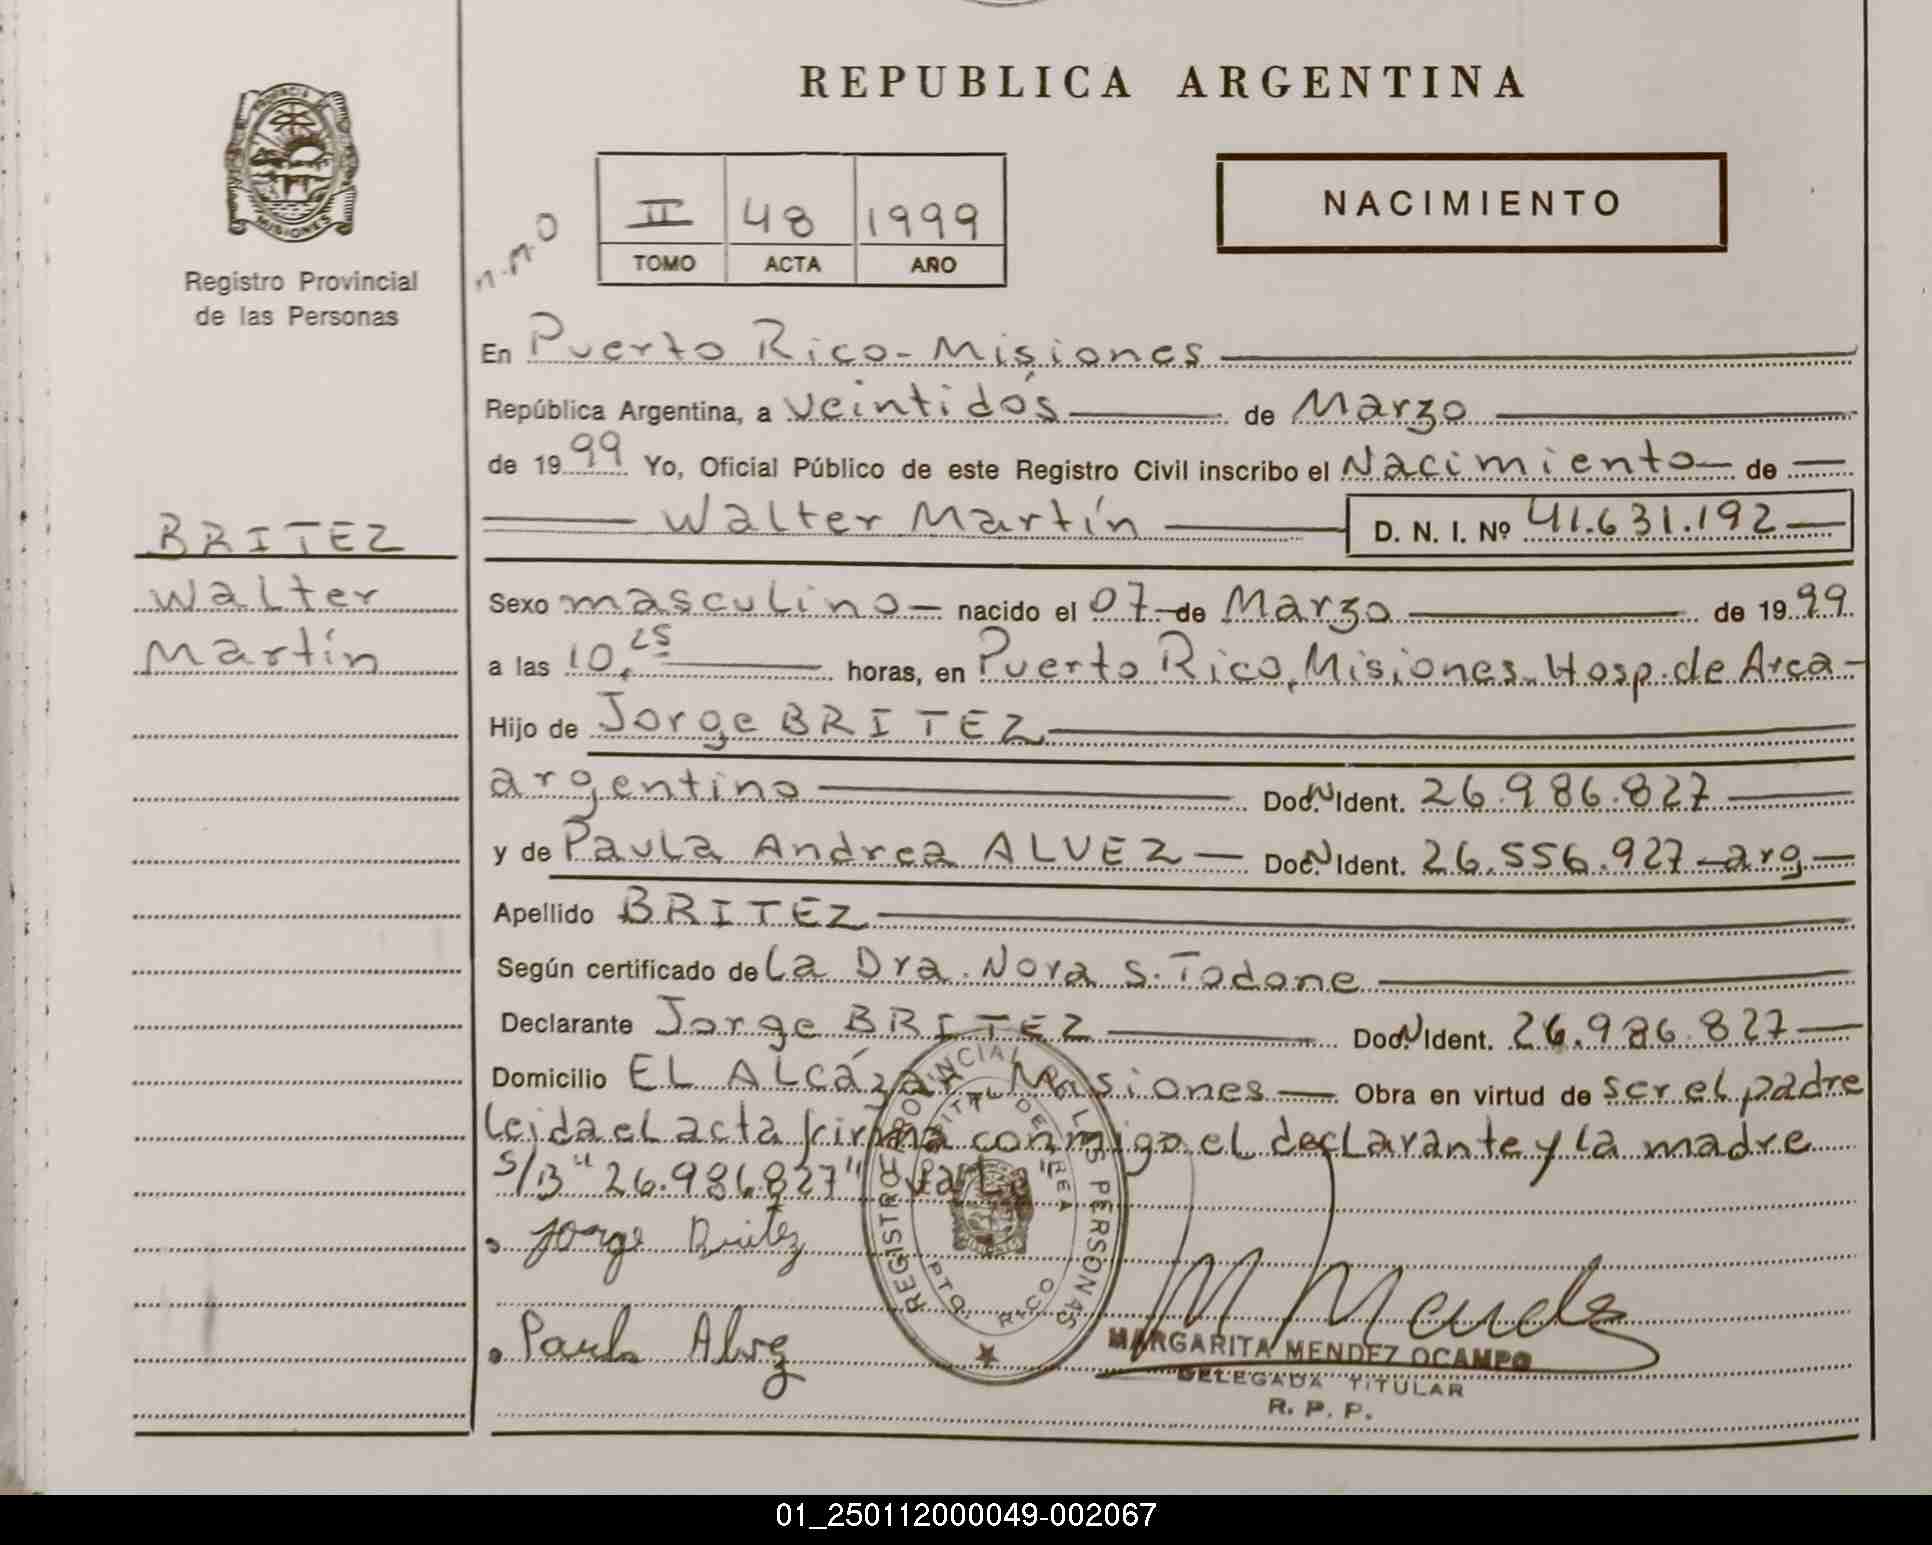 REPUBLICA ARGENTINA
PROVINCIA DE
MISIONES
Registro Provincial
de las Personas
II 48 1999
TOMO ACTA AÑO
NACIMIENTO
n.n.o
En Puerto Rico - Misiones
República Argentina, a Veintidós de Marzo
de 1999 Yo, Oficial Público de este Registro Civil inscribo el Nacimiento de
Walter Martín D. N. I. Nº 41.631.192
BRITEZ
Walter
Martín
Sexo masculino nacido el 07 de Marzo de 1999
a las 10,25 horas, en Puerto Rico, Misiones. Hosp. de Area
Hijo de Jorge BRITEZ
argentino Doc. N Ident. 26.986.827
y de Paula Andrea ALVEZ Doc. N Ident. 26.556.927 - arg
Apellido BRITEZ
Según certificado de La Dra. Nora S. Todone
Declarante Jorge BRITEZ Doc. N Ident. 26.986.827
Domicilio EL ALcázar - Misiones Obra en virtud de ser el padre
Leida el acta firma conmigo el declarante y la madre
S/B "26.986.827"
Jorge Britez
Paula Alvez
REGISTRO PROVINCIAL DE LAS PERSONAS
HOSPITAL DE AREA
PTO. RICO
M Mendez
MARGARITA MENDEZ OCAMPO
DELEGADA TITULAR
R. P. P.
01_250112000049-002067